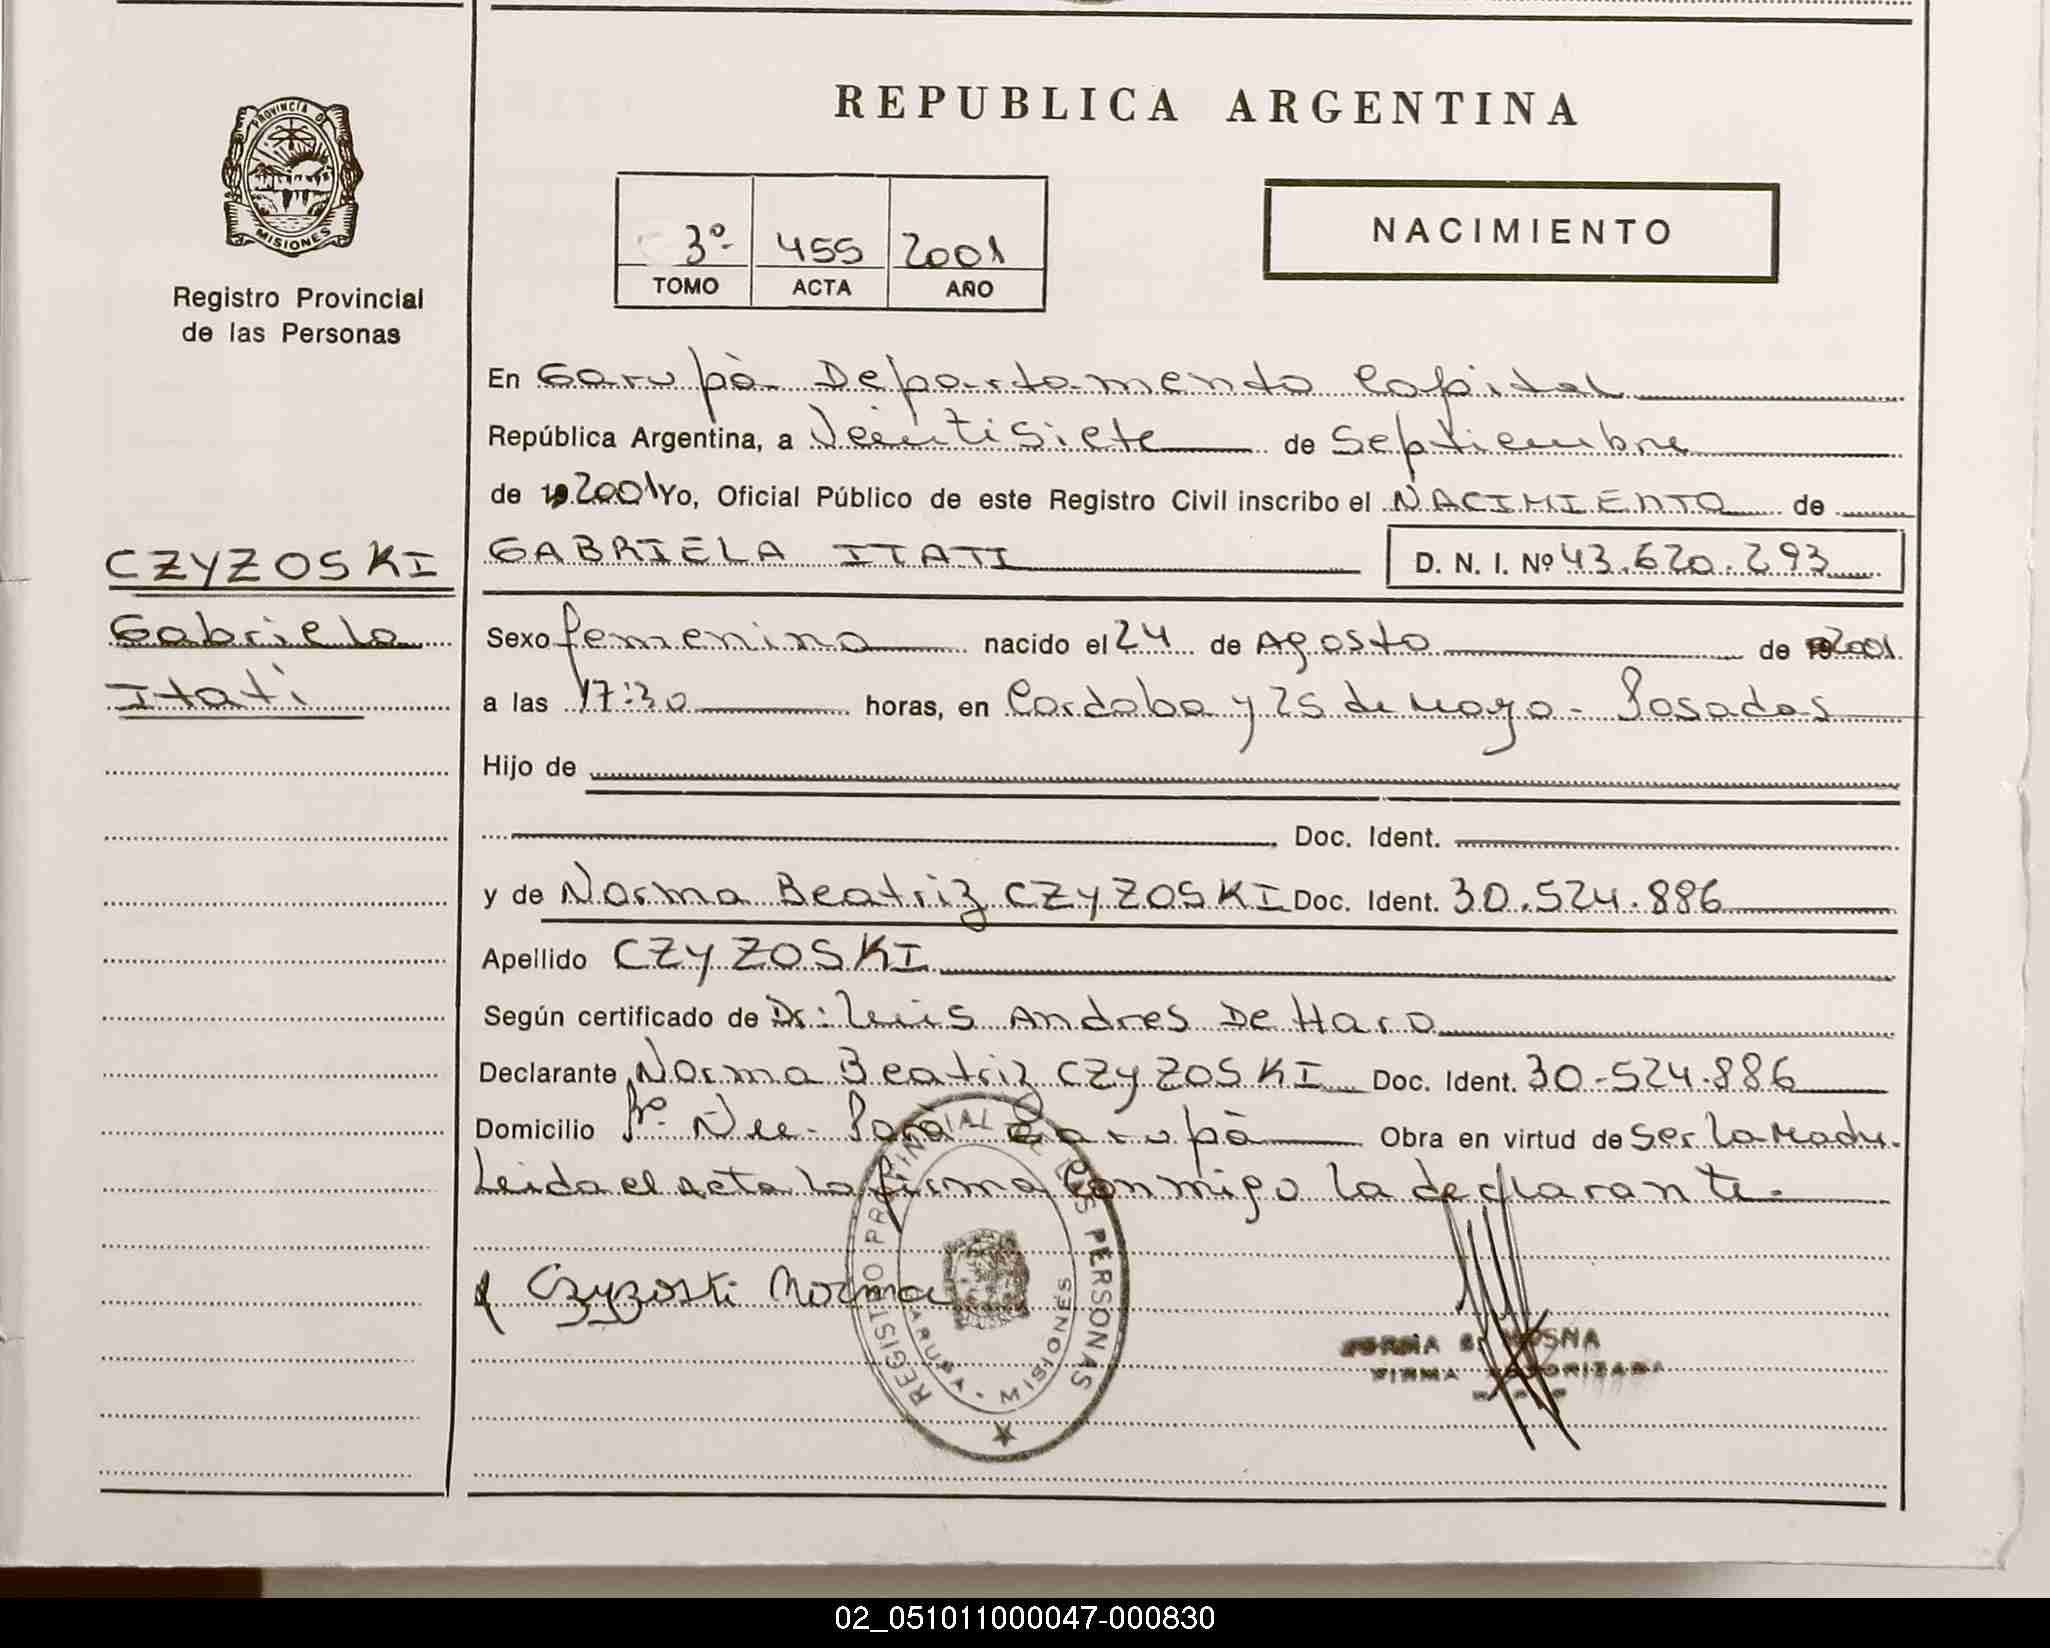 REPUBLICA ARGENTINA
PROVINCIA DE
MISIONES
Registro Provincial
de las Personas
3º 455 2001
TOMO ACTA AÑO
NACIMIENTO
En Garupà Departamento Capital
República Argentina, a Veintisiete de Septiembre
de 19 2001 Yo, Oficial Público de este Registro Civil inscribo el NACIMIENTO de
CZYZOSKI
Gabriela
Itati
GABRIELA ITATI D. N. I. Nº 43.620.293
Sexo femenino nacido el 24 de Agosto de 2001
a las 17:30 horas, en Cordoba y 25 de Mayo - Posadas
Hijo de
Doc. Ident.
y de Norma Beatriz CZYZOSKI Doc. Ident. 30.524.886
Apellido CZYZOSKI
Según certificado de Dr: Luis Andres De Haro
Declarante Norma Beatriz CZYZOSKI Doc. Ident. 30-524.886
Domicilio Garupà Obra en virtud de ser la Madre.
Leida el acta la firma Conmigo la declarante.
Czyzoski Norma
REGISTRO PROVINCIAL DE LAS PERSONAS
GARUPA - MISIONES
NORMA B. MOSNA
FIRMA AUTORIZADA
02_051011000047-000830